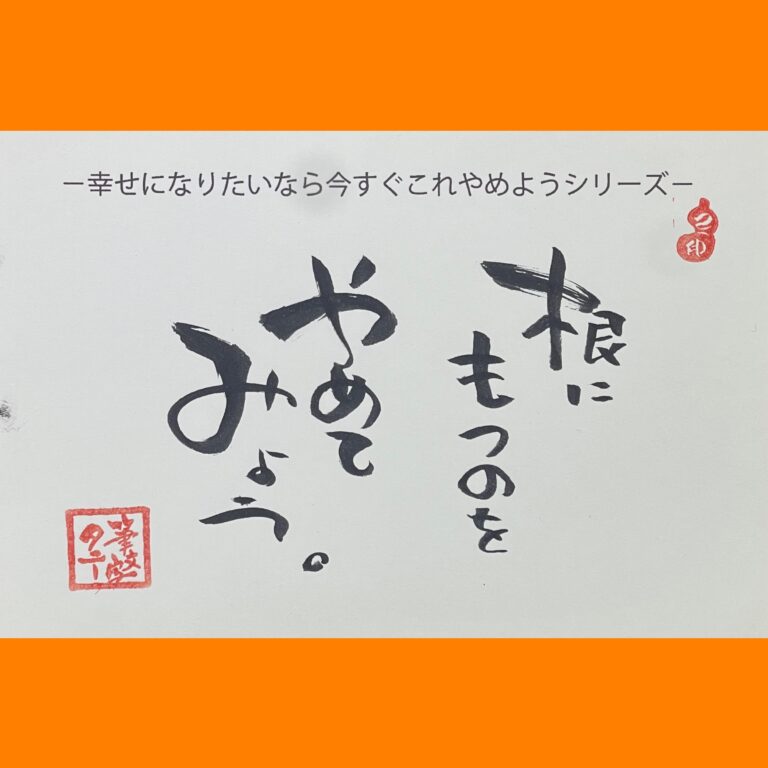 －幸せになりたいなら今すぐこれやめようシリーズ－
根に
もつのを
やめて
みよう。